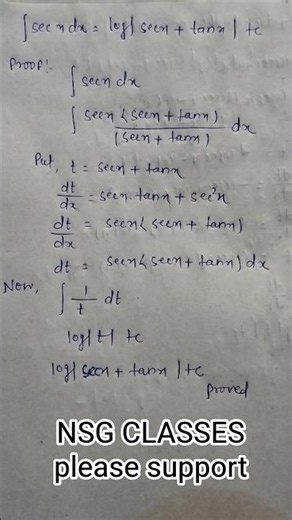 ∫sec x dx = log|secx + tanx| + c
Proof:
∫ secx dx
∫ secx(secx + tanx) / (secx + tanx) dx
Put, t = secx + tanx
dt/dx = secx tanx + sec²x
dt/dx = secx(secx + tanx)
dt = secx(secx + tanx) dx
Now, ∫ 1/t dt
log|t| + c
log|secx + tanx| + c
proved
NSG CLASSES
please support